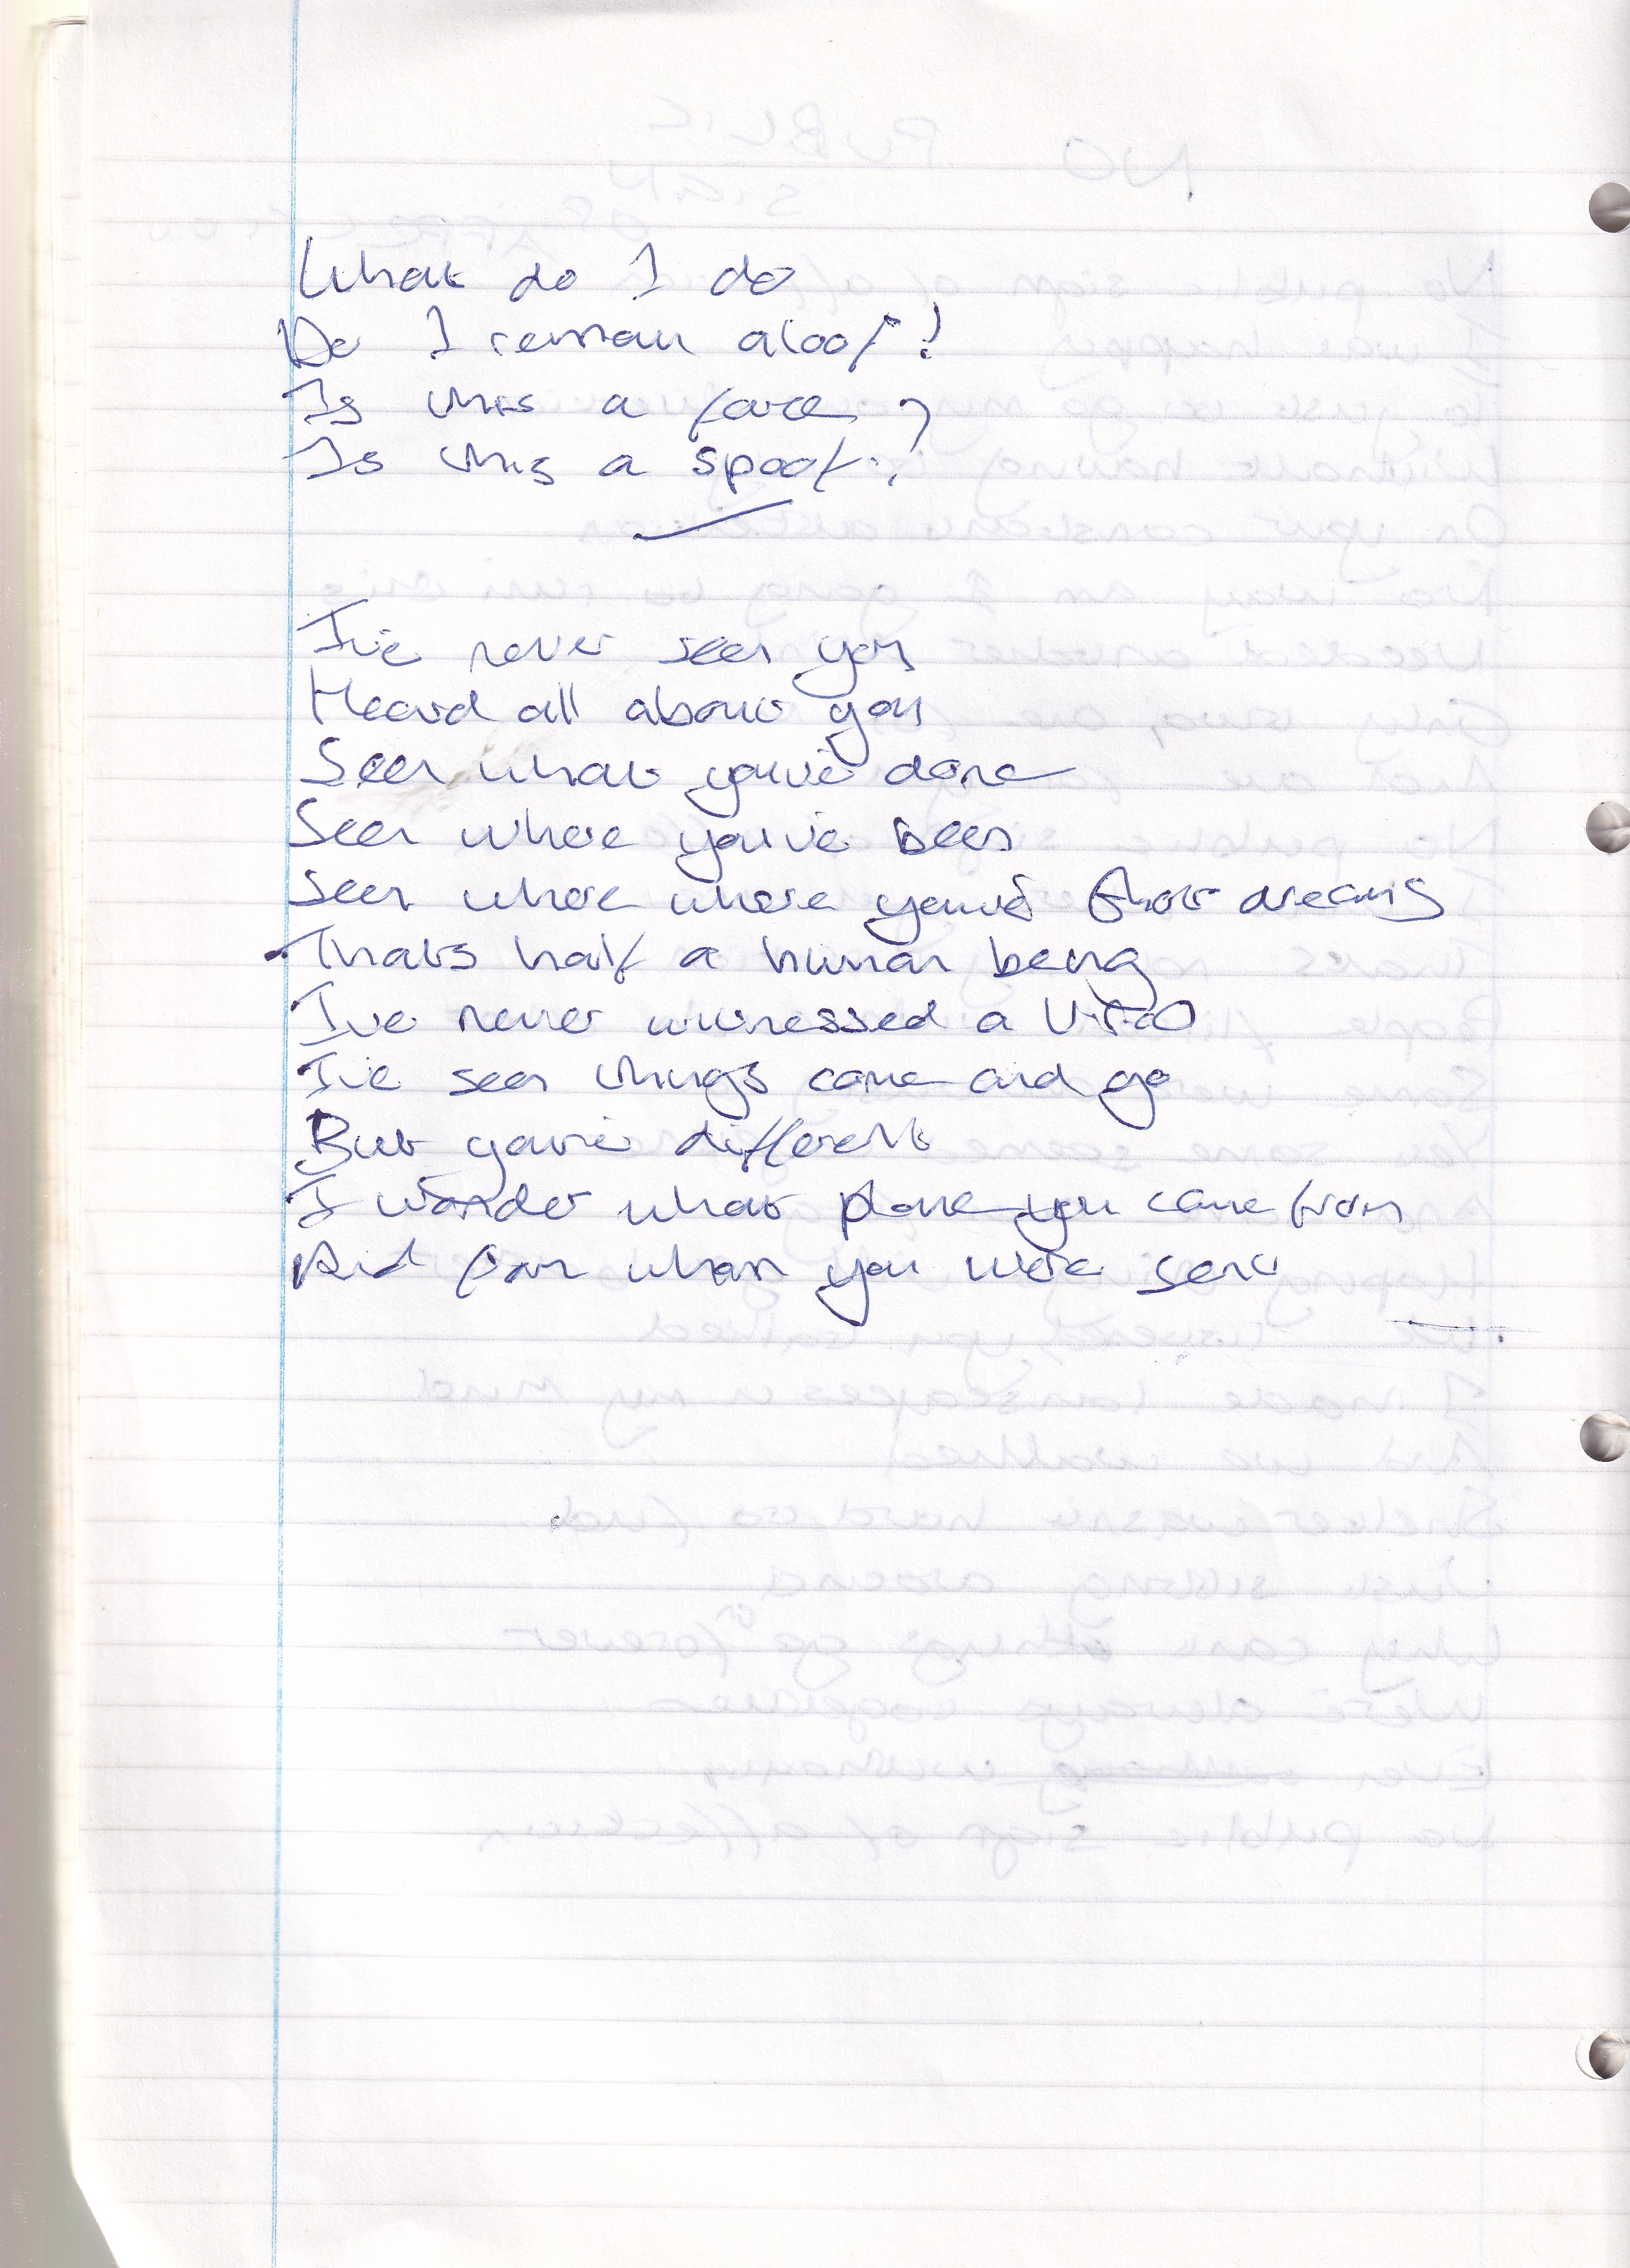 What do I do
Do I remain aloof?
Is this a farce?
Is this a spoof?
I've never seen you
Heard all about you
Seen what you've done
Seen where you've been
Seen where where you've their dreams
Thats half a human being
I've never witnessed a U.F.O
I've seen things come and go
But you're different
I wonder what plane you came from
And for whom you were sent